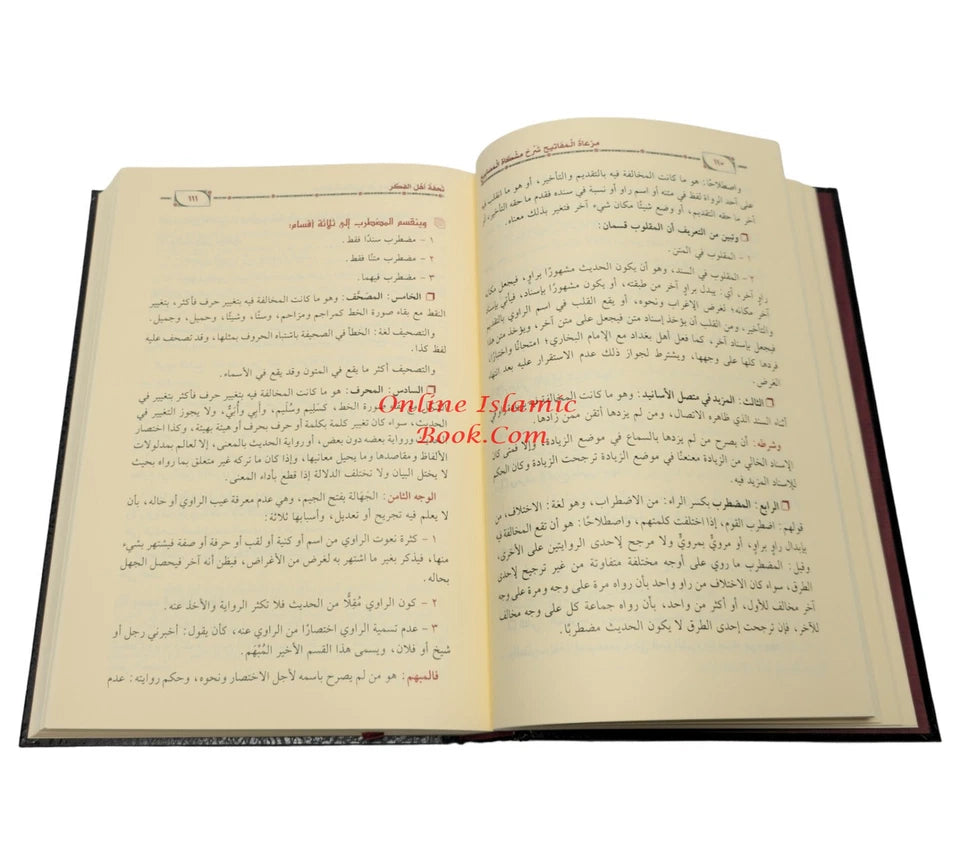 مرعاة المفاتيح شرح مشكاة المصابيح
١١٠
واصطلاحًا: هو ما كانت المخالفة فيه بالتقديم والتأخير، أو هو ما انقلب فيه
على أحد الرواة لفظ في متنه أو اسم راو أو نسبة في سنده فقدم ما حقه التأخير، أو
آخر ما حقه التقديم، أو وضع شيئًا مكان شيء آخر فتغير بذلك معناه.
وتبين من التعريف أن المقلوب قسمان:
١- المقلوب في المتن.
٢- المقلوب في السند، وهو أن يكون الحديث مشهورًا براوٍ، فيجعل مكانه
راوٍ آخر، أي: يبدل براوٍ آخر من طبقته، أو يكون مشهورًا بإسناد، فيأتي بإسناد
آخر مكانه؛ لغرض الإغراب ونحوه، أو يقع القلب في اسم الراوي بالتقديم
والتأخير، ومن القلب أن يؤخذ إسناد متن فيجعل على متن آخر، ويؤخذ متن
فيجعل بإسناد آخر، كما فعل أهل بغداد مع الإمام البخاري؛ امتحانًا واختبارًا
فردها كلها على وجهها، ويشترط لجواز ذلك عدم الاستقرار عليه بعد انتهاء
الغرض.
الثالث: المزيد في متصل الأسانيد: وهو ما كانت المخالفة
أثناء السند الذي ظاهره الاتصال، ومن لم يزدها أتقن ممن زادها.
وشرطه: أن يصرح من لم يزدها بالسماع في موضع الزيادة، وإلا فمتى كان
الإسناد الخالي من الزيادة معنعنًا في موضع الزيادة ترجحت الزيادة وكان الحكم
للإسناد المزيد فيه.
الرابع: المضطرب بكسر الراء: من الاضطراب، وهو لغة: الاختلاف، من
قولهم: اضطرب القوم، إذا اختلفت كلمتهم، واصطلاحًا: هو أن تقع المخالفة فيه
بإبدال راوٍ براوٍ، أو مرويٍّ بمرويٍّ ولا مرجح لإحدى الروايتين على الأخرى،
وقيل: المضطرب ما روي على أوجه مختلفة متفاوتة من غير ترجيح لإحدى
الطرق، سواء كان الاختلاف من راو واحد بأن رواه مرة على وجه ومرة على وجه
آخر مخالف للأول، أو أكثر من واحد، بأن رواه جماعة كل على وجه مخالف
للآخر، فإن ترجحت إحدى الطرق لا يكون الحديث مضطربًا.
تحفة أهل الفكر
١١١
وينقسم المضطرب إلى ثلاثة أقسام:
١ - مضطرب سندًا فقط.
٢ - مضطرب متنًا فقط.
٣ - مضطرب فيهما.
الخامس: المصَحَّف: وهو ما كانت المخالفة فيه بتغيير حرف فأكثر، بتغيير
النقط مع بقاء صورة الخط كمراجم ومزاحم، وستًّا، وشيئًا، وحميل، وجميل.
والتصحيف لغة: الخطأ في الصحيفة باشتباه الحروف بمثلها، وقد تصحف عليه
لفظ كذا.
والتصحيف أكثر ما يقع في المتون وقد يقع في الأسماء.
السادس: المحرف: هو ما كانت المخالفة فيه بتغيير حرف فأكثر في بتغيير في
صورة الخط، كسَليم وسُليم، وأَبِي وأُبَيٍّ، ولا يجوز التغيير في
الحديث، سواء كان تغيير كلمة بكلمة أو حرف بحرف أو هيئة بهيئة، وكذا اختصار
ورواية بعضه دون بعض، أو رواية الحديث بالمعنى، إلا لعالم بمدلولات
الألفاظ ومقاصدها وما يحيل معانيها، وإذا كان ما تركه غير متعلق بما رواه بحيث
لا يختل البيان ولا تختلف الدلالة إذا قطع بأداء المعنى.
الوجه الثامن: الجَهالة بفتح الجيم، وهي عدم معرفة عيب الراوي أو حاله، بأن
لا يعلم فيه تجريح أو تعديل، وأسبابها ثلاثة:
١ - كثرة نعوت الراوي من اسم أو كنية أو لقب أو حرفة أو صفة فيشتهر بشيء
منها، فيذكر بغير ما اشتهر به لغرض من الأغراض، فيظن أنه آخر فيحصل الجهل
بحاله.
٢ - كون الراوي مُقِلًّا من الحديث فلا تكثر الرواية والأخذ عنه.
٣ - عدم تسمية الراوي اختصارًا من الراوي عنه، كأن يقول: أخبرني رجل أو
شيخ أو فلان، ويسمى هذا القسم الأخير المُبْهَم.
فالمبهم: هو من لم يصرح باسمه لأجل الاختصار ونحوه، وحكم روايته: عدم
Online Islamic
Book.Com